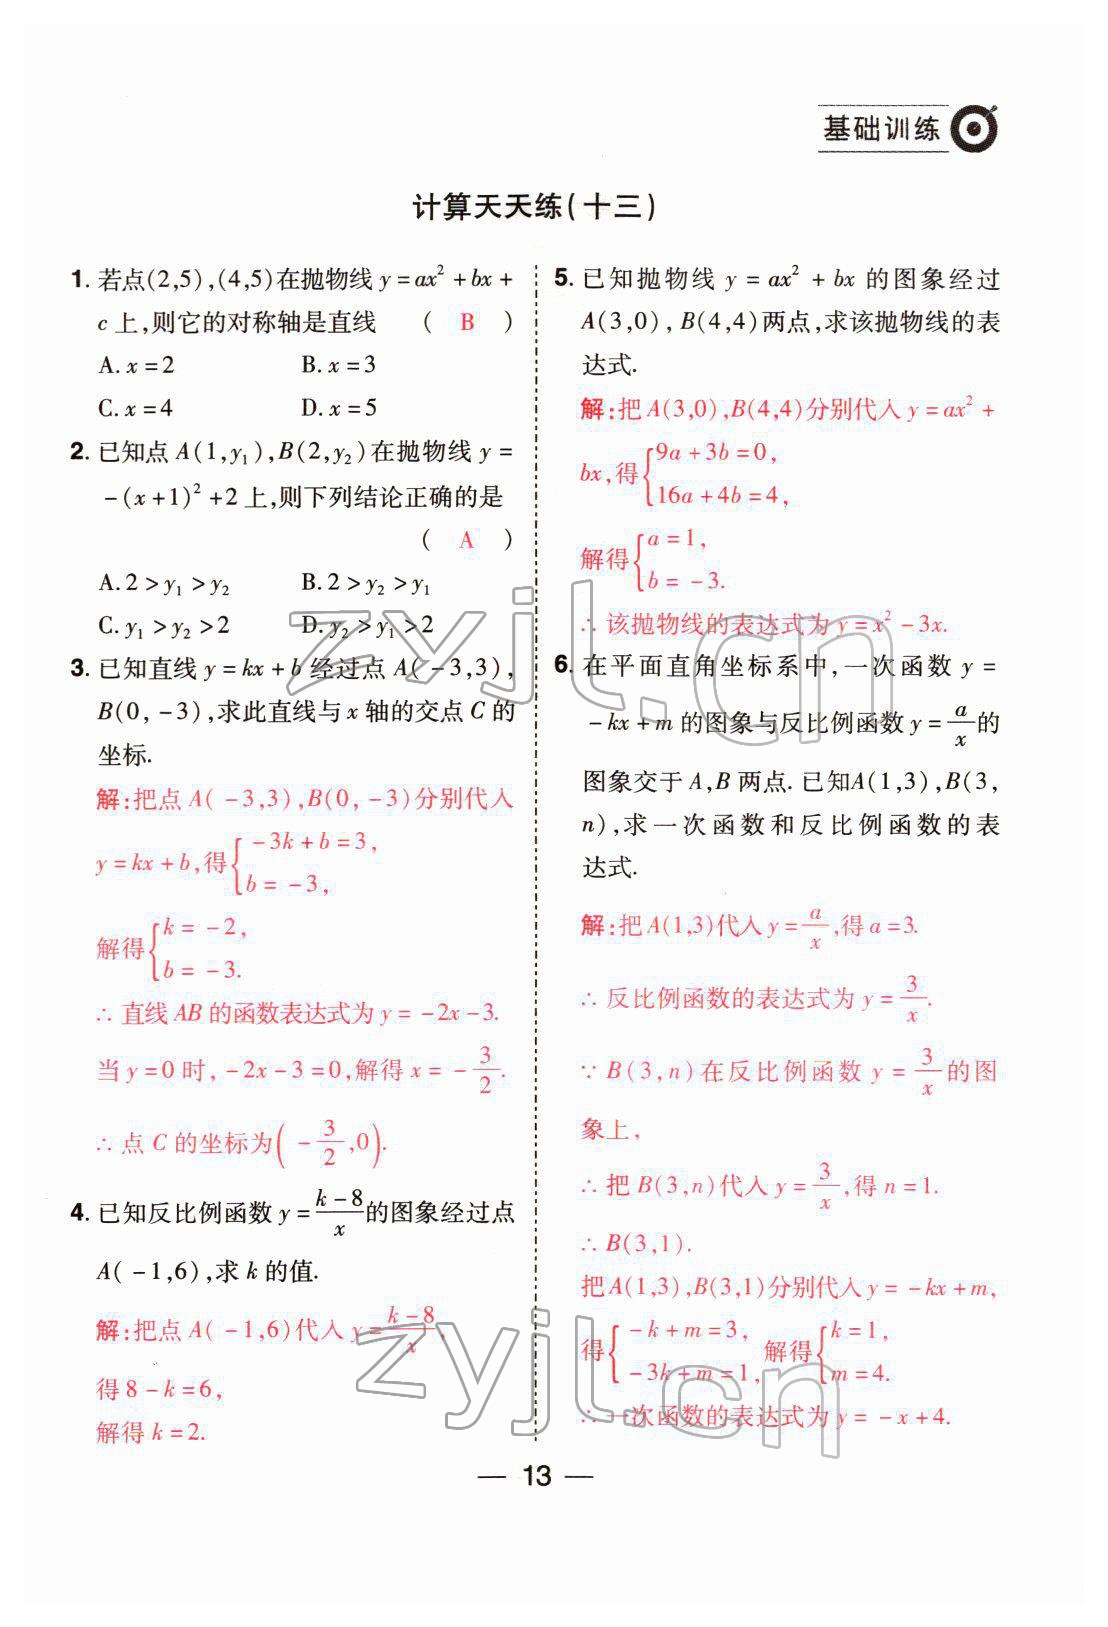 基础训练
计算天天练(十三)
1. 若点(2,5),(4,5)在抛物线 y=ax²+bx+
c 上,则它的对称轴是直线 ( B )
A. x=2 B. x=3
C. x=4 D. x=5
2. 已知点 A(1,y₁),B(2,y₂)在抛物线 y=
-(x+1)²+2 上,则下列结论正确的是
( A )
A. 2>y₁>y₂ B. 2>y₂>y₁
C. y₁>y₂>2 D. y₂>y₁>2
3. 已知直线 y=kx+b 经过点 A(-3,3),
B(0,-3),求此直线与 x 轴的交点 C 的
坐标.
解:把点 A(-3,3),B(0,-3)分别代入
y=kx+b,得{-3k+b=3,
b=-3,
解得{k=-2,
b=-3.
∴直线 AB 的函数表达式为 y=-2x-3.
当 y=0 时,-2x-3=0,解得 x=-3/2.
∴点 C 的坐标为(-3/2,0).
4. 已知反比例函数 y=(k-8)/x 的图象经过点
A(-1,6),求 k 的值.
解:把点 A(-1,6)代入 y=(k-8)/x,
得 8-k=6,
解得 k=2.
5. 已知抛物线 y=ax²+bx 的图象经过
A(3,0),B(4,4)两点,求该抛物线的表
达式.
解:把 A(3,0),B(4,4)分别代入 y=ax²+
bx,得{9a+3b=0,
16a+4b=4,
解得{a=1,
b=-3.
∴该抛物线的表达式为 y=x²-3x.
6. 在平面直角坐标系中,一次函数 y=
-kx+m 的图象与反比例函数 y=a/x 的
图象交于 A,B 两点. 已知A(1,3),B(3,
n),求一次函数和反比例函数的表
达式.
解:把 A(1,3)代入 y=a/x,得 a=3.
∴反比例函数的表达式为 y=3/x.
∵B(3,n)在反比例函数 y=3/x 的图
象上,
∴把 B(3,n)代入 y=3/x,得 n=1.
∴B(3,1).
把A(1,3),B(3,1)分别代入 y=-kx+m,
得{-k+m=3, 解得{k=1,
-3k+m=1, m=4.
∴一次函数的表达式为 y=-x+4.
— 13 —
zyjl.cn
zyjl.cn